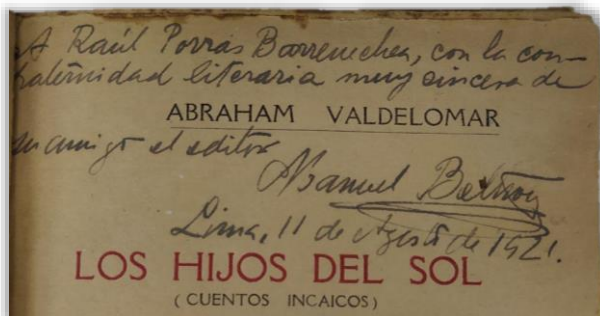 A Raúl Porras Barrenechea, con la con-
fraternidad literaria muy sincera de
ABRAHAM VALDELOMAR
su amigo el editor
Manuel Beltroy
Lima, 11 de Agosto de 1921.
LOS HIJOS DEL SOL
(CUENTOS INCAICOS)